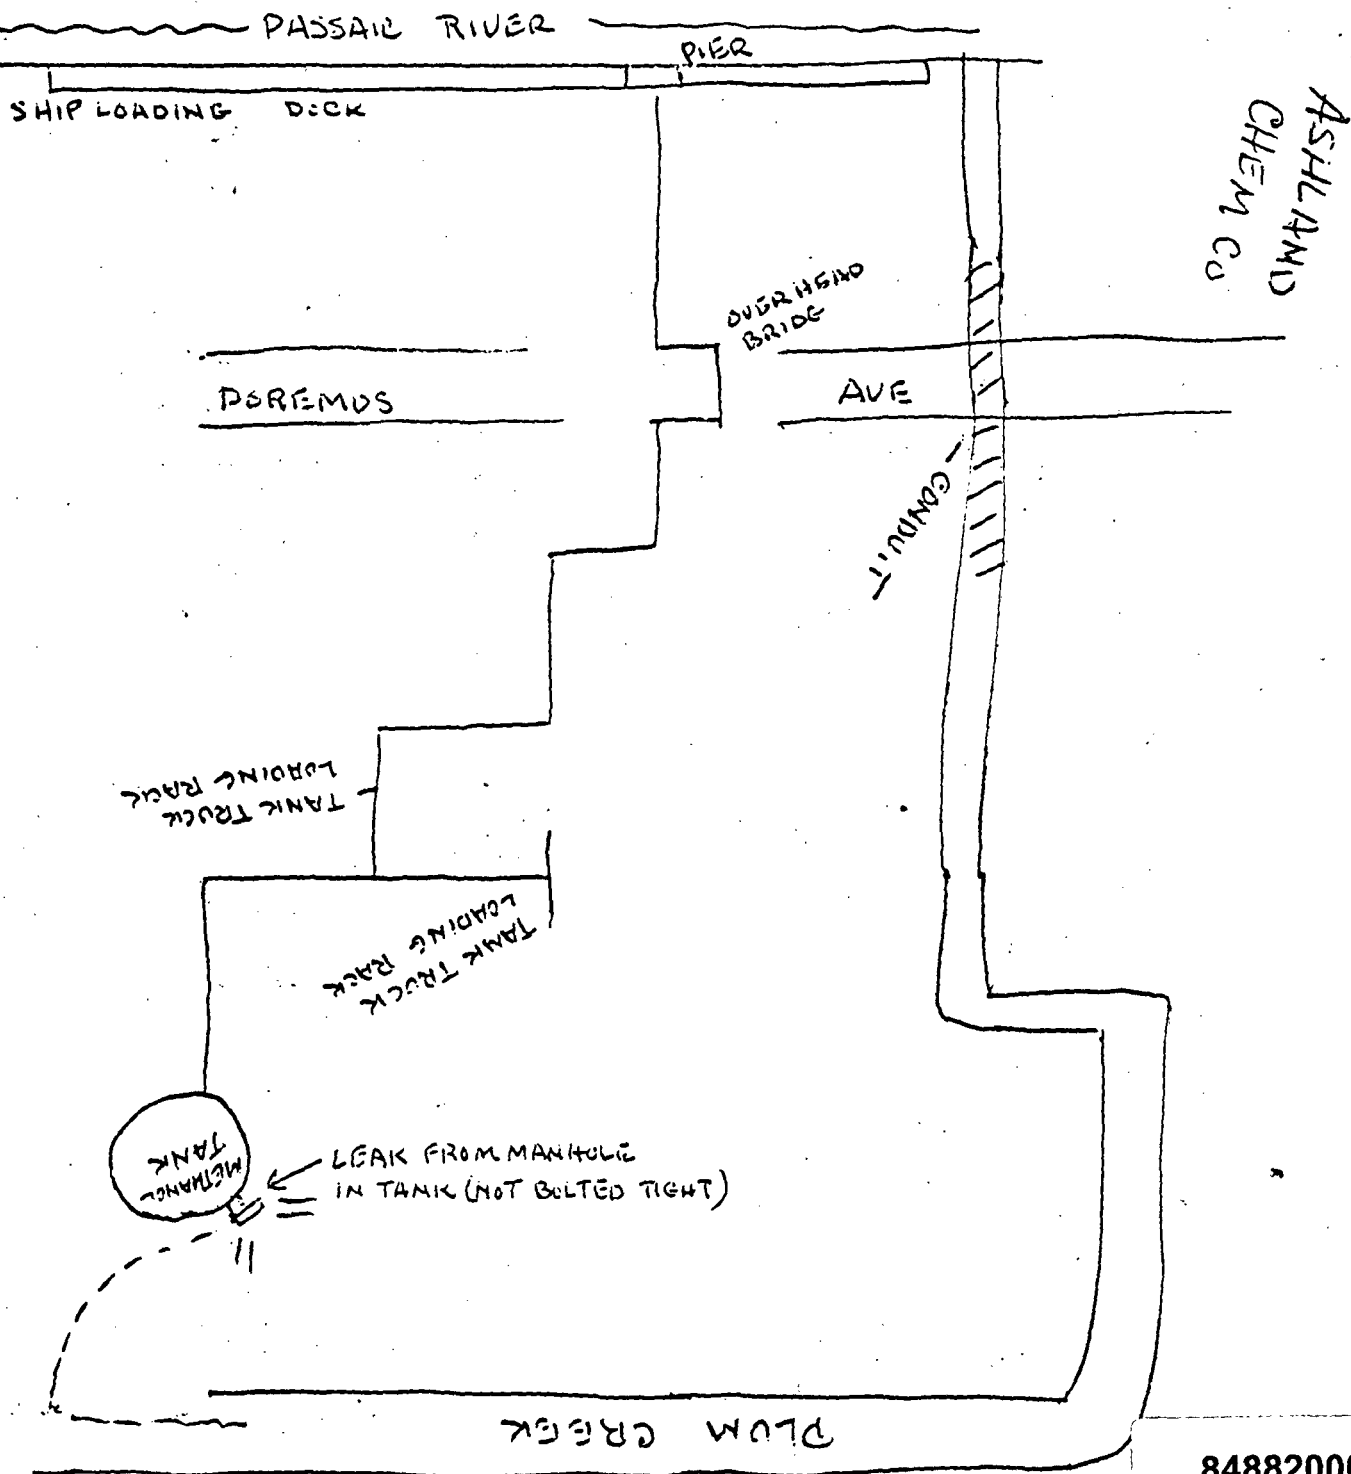 PASSAIC RIVER
PIER
SHIP LOADING DOCK
ASHLAND
CHEM CO
OVERHEAD
BRIDGE
DOREMUS AVE
CONDUIT
TANK TRUCK
LOADING RACK
TANK TRUCK
LOADING RACK
METHANOL
TANK
LEAK FROM MANHOLE
IN TANK (NOT BOLTED TIGHT)
PLUM CREEK